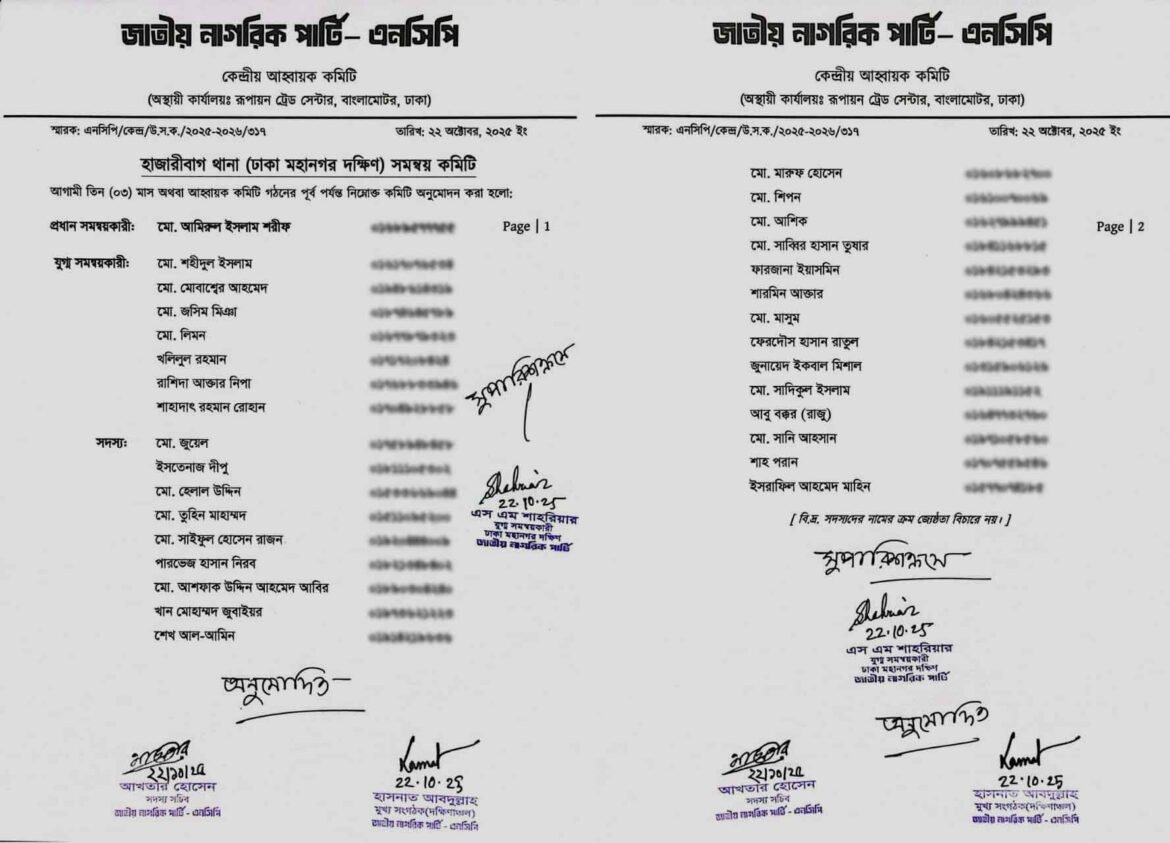 জাতীয় নাগরিক পার্টি– এনসিপি
কেন্দ্রীয় আহ্বায়ক কমিটি
(অস্থায়ী কার্যালয়ঃ রূপায়ন ট্রেড সেন্টার, বাংলামোটর, ঢাকা)
স্মারক: এনসিপি/কেন্দ্র/উ.স.ক./২০২৫-২০২৬/৩১৭ তারিখ: ২২ অক্টোবর, ২০২৫ ইং
হাজারীবাগ থানা (ঢাকা মহানগর দক্ষিণ) সমন্বয় কমিটি
আগামী তিন (০৩) মাস অথবা আহ্বায়ক কমিটি গঠনের পূর্ব পর্যন্ত নিম্নোক্ত কমিটি অনুমোদন করা হলো:
প্রধান সমন্বয়কারী: মো. আমিরুল ইসলাম শরীফ
Page | 1
যুগ্ম সমন্বয়কারী: মো. শহীদুল ইসলাম
মো. মোবাশ্বের আহমেদ
মো. জসিম মিঞা
মো. লিমন
খলিলুল রহমান
রাশিদা আক্তার নিপা
শাহাদাৎ রহমান রোহান
সদস্য: মো. জুয়েল
ইসতেনাজ দীপু
মো. হেলাল উদ্দিন
মো. তুহিন মাহাম্মদ
মো. সাইফুল হোসেন রাজন
পারভেজ হাসান নিরব
মো. আশফাক উদ্দিন আহমেদ আবির
খান মোহাম্মদ জুবাইয়র
শেখ আল-আমিন
সুপারিশক্রমে
Shahriar
22.10.25
এস এম শাহরিয়ার
যুগ্ম সমন্বয়কারী
ঢাকা মহানগর দক্ষিণ
জাতীয় নাগরিক পার্টি
অনুমোদিত
২২/১০/২৫
আখতার হোসেন
সদস্য সচিব
জাতীয় নাগরিক পার্টি - এনসিপি
22.10.25
হাসনাত আবদুল্লাহ
মুখ্য সংগঠক(দক্ষিণাঞ্চল)
জাতীয় নাগরিক পার্টি - এনসিপি
জাতীয় নাগরিক পার্টি– এনসিপি
কেন্দ্রীয় আহ্বায়ক কমিটি
(অস্থায়ী কার্যালয়ঃ রূপায়ন ট্রেড সেন্টার, বাংলামোটর, ঢাকা)
স্মারক: এনসিপি/কেন্দ্র/উ.স.ক./২০২৫-২০২৬/৩১৭ তারিখ: ২২ অক্টোবর, ২০২৫ ইং
মো. মারুফ হোসেন
মো. শিপন
মো. আশিক
Page | 2
মো. সাব্বির হাসান তুষার
ফারজানা ইয়াসমিন
শারমিন আক্তার
মো. মাসুম
ফেরদৌস হাসান রাতুল
জুনায়েদ ইকবাল মিশাল
মো. সাদিকুল ইসলাম
আবু বক্কর (রাজু)
মো. সানি আহসান
শাহ পরান
ইসরাফিল আহমেদ মাহিন
[ বি.দ্র. সদস্যদের নামের ক্রম জ্যেষ্ঠতা বিচারে নয়। ]
সুপারিশক্রমে
Shahriar
22.10.25
এস এম শাহরিয়ার
যুগ্ম সমন্বয়কারী
ঢাকা মহানগর দক্ষিণ
জাতীয় নাগরিক পার্টি
অনুমোদিত
২২/১০/২৫
আখতার হোসেন
সদস্য সচিব
জাতীয় নাগরিক পার্টি - এনসিপি
22.10.25
হাসনাত আবদুল্লাহ
মুখ্য সংগঠক(দক্ষিণাঞ্চল)
জাতীয় নাগরিক পার্টি - এনসিপি